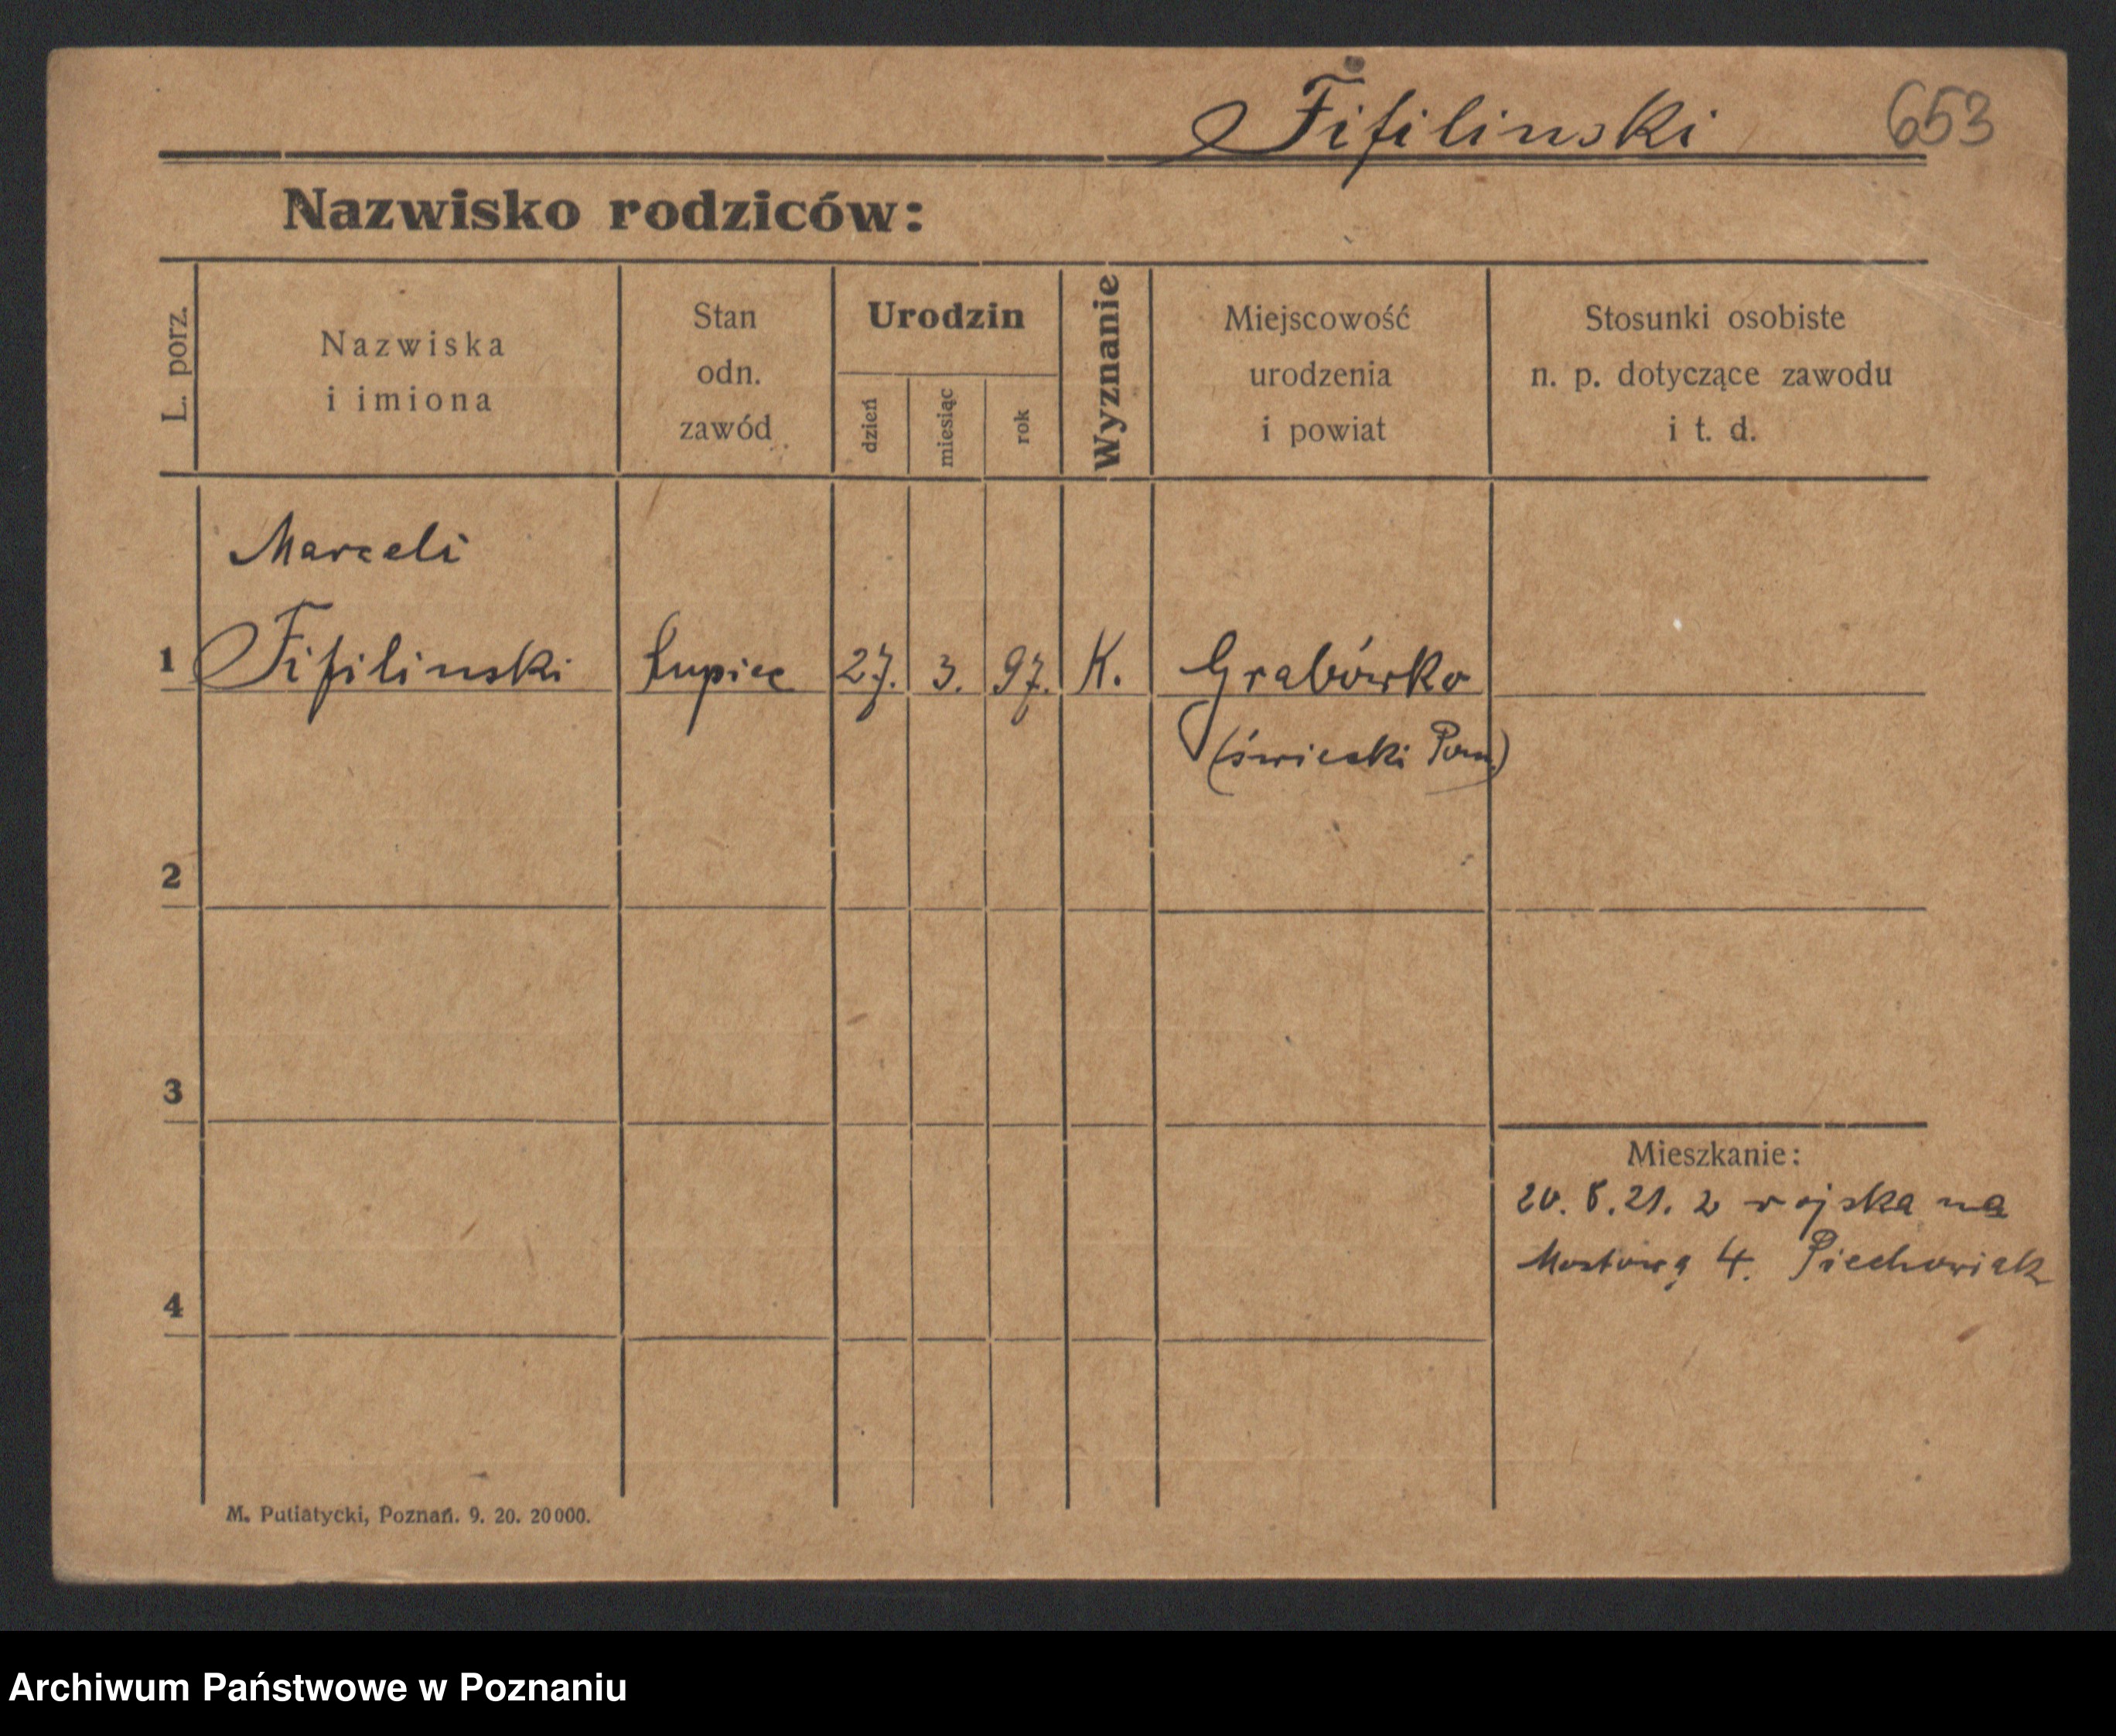 Fifilinski 653
Nazwisko rodziców:
L. porz.
Nazwiska
i imiona
Stan
odn.
zawód
Urodzin
dzień
miesiąc
rok
Wyznanie
Miejscowość
urodzenia
i powiat
Stosunki osobiste
n. p. dotyczące zawodu
i t. d.
Marceli
1 Fifilinski kupiec 27. 3. 97. K. Grabówko
(świecki Pom.)
2
3
Mieszkanie:
20. 8. 21. z wojska na
Mostową 4. Piechowiak
4
M. Putiatycki, Poznań. 9. 20. 20000.
Archiwum Państwowe w Poznaniu